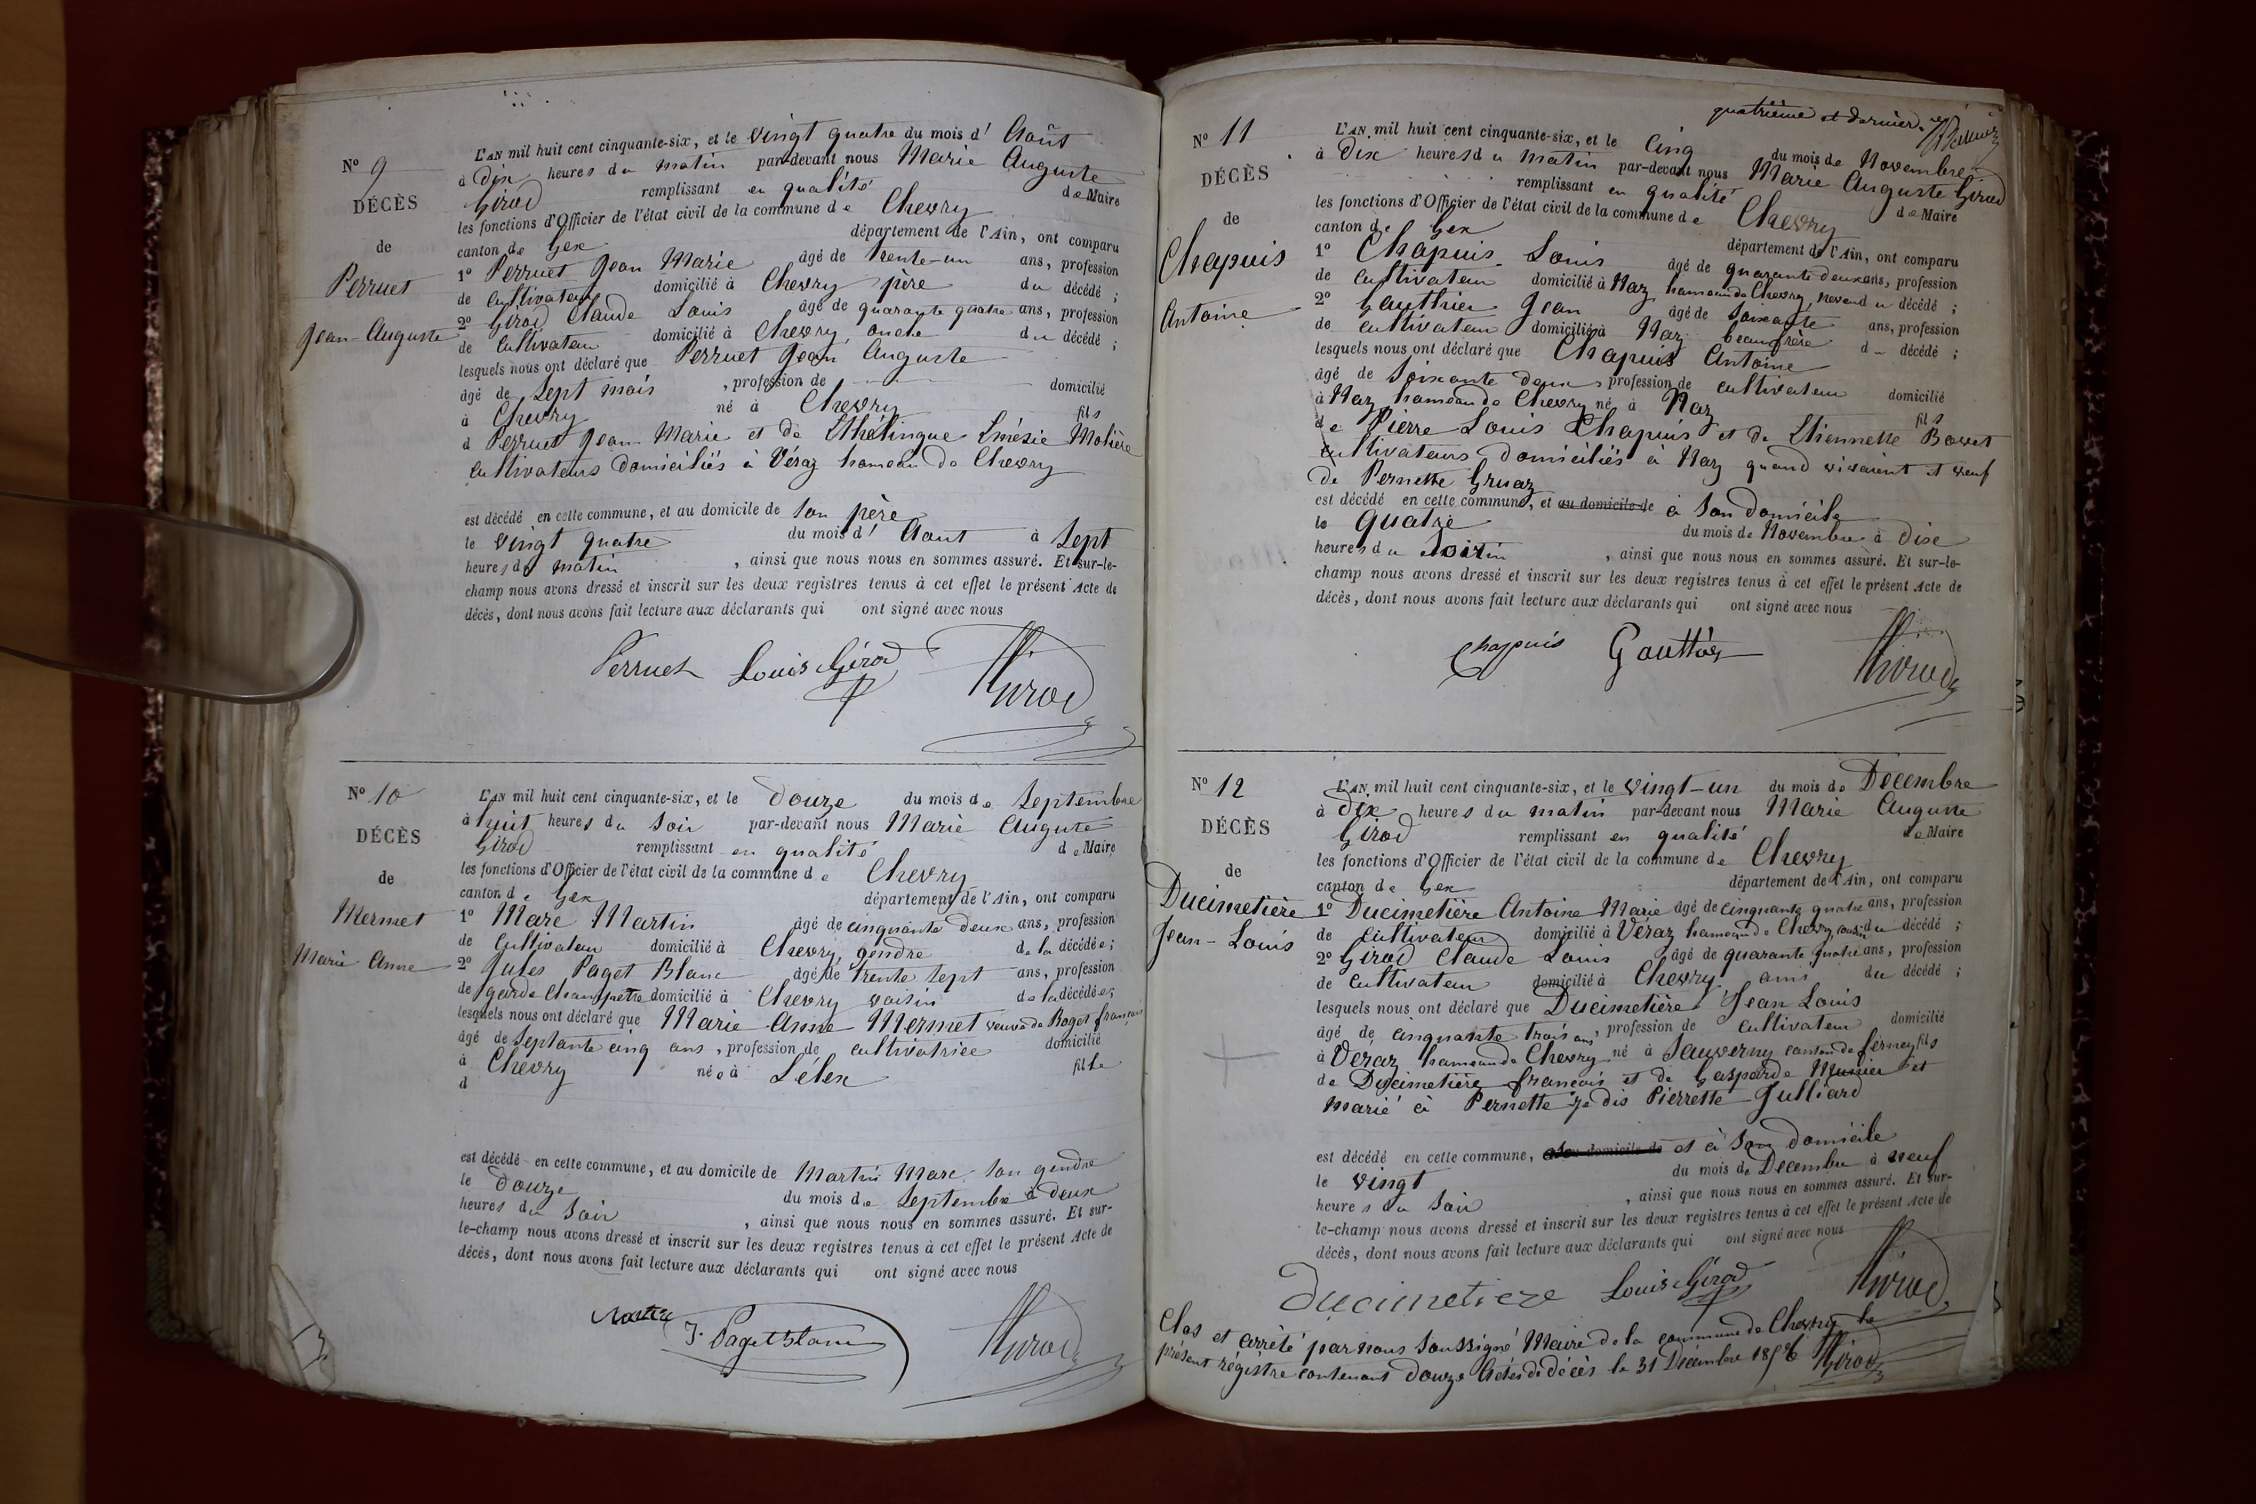 N° 9
DÉCÈS
de
Perruet
Jean-Auguste
L'AN mil huit cent cinquante-six, et le vingt quatre du mois d' Août
à dix heures du matin par-devant nous Marie Auguste
Girod remplissant en qualité de Maire
les fonctions d'Officier de l'état civil de la commune de Chevry
canton de Gex département de l'Ain, ont comparu
1° Perruet Jean Marie âgé de trente-un ans, profession
de cultivateur domicilié à Chevry père du décédé ;
2° Girod Claude Louis âgé de quarante quatre ans, profession
de cultivateur domicilié à Chevry, oncle du décédé ;
lesquels nous ont déclaré que Perruet Jean Auguste
âgé de sept mois , profession de domicilié
à Chevry né à Chevry fils
d Perruet Jean Marie et de Ethélingue Emésie Molière
cultivateurs domiciliés à Véraz hameau de Chevry
est décédé en cette commune, et au domicile de son père
le vingt quatre du mois d' Aout à sept
heures du matin , ainsi que nous nous en sommes assuré. Et sur-le-
champ nous avons dressé et inscrit sur les deux registres tenus à cet effet le présent Acte de
décès, dont nous avons fait lecture aux déclarants qui ont signé avec nous
Perruet Louis Girod Girod
N° 10
DÉCÈS
de
Mermet
Marie Anne
L'AN mil huit cent cinquante-six, et le douze du mois de Septembre
à huit heures du soir par-devant nous Marie Auguste
Girod remplissant en qualité de Maire
les fonctions d'Officier de l'état civil de la commune de Chevry
canton de Gex département de l'Ain, ont comparu
1° Marc Martin âgé de cinquante deux ans, profession
de cultivateur domicilié à Chevry, gendre de la décédée ;
2° Jules Paget Blanc âgé de trente sept ans, profession
de garde champêtre domicilié à Chevry voisin de la décédée ;
lesquels nous ont déclaré que Marie Anne Mermet veuve de Roget françois
âgé de septante cinq ans , profession de cultivatrice domicilié
à Chevry née à Lélex fille
d
est décédé en cette commune, et au domicile de Martin Marc son gendre
le douze du mois de Septembre à deux
heures du soir , ainsi que nous nous en sommes assuré. Et sur-
le-champ nous avons dressé et inscrit sur les deux registres tenus à cet effet le présent Acte de
décès, dont nous avons fait lecture aux déclarants qui ont signé avec nous
J. Paget blanc Girod
quatrième et dernier
N° 11
DÉCÈS
de
Chapuis
Antoine
L'AN mil huit cent cinquante-six, et le cinq du mois de Novembre
à dix heures du matin par-devant nous Marie Auguste Girod
remplissant en qualité de Maire
les fonctions d'Officier de l'état civil de la commune de Chevry
canton de Gex département de l'Ain, ont comparu
1° Chapuis Louis âgé de quarante deux ans, profession
de cultivateur domicilié à Naz hameau de Chevry, neveu du décédé ;
2° Gauthier Jean âgé de soixante ans, profession
de cultivateur domicilié à Naz beaufrère d décédé ;
lesquels nous ont déclaré que Chapuis Antoine
âgé de soixante deux , profession de cultivateur domicilié
à Naz hameau de Chevry né à Naz fils
de Pierre Louis Chapuis et de Etiennette Bovet
cultivateurs domiciliés à Naz quand vivaient et veuf
de Pernette Gruaz
est décédé en cette commune, et au domicile de à son domicile
le quatre du mois de Novembre à dix
heures du soir , ainsi que nous nous en sommes assuré. Et sur-le-
champ nous avons dressé et inscrit sur les deux registres tenus à cet effet le présent Acte de
décès, dont nous avons fait lecture aux déclarants qui ont signé avec nous
Chapuis Gautthier Girod
N° 12
DÉCÈS
de
Ducimetière
Jean-Louis
L'AN mil huit cent cinquante-six, et le vingt-un du mois de Decembre
à dix heures du matin par-devant nous Marie Auguste
Girod remplissant en qualité de Maire
les fonctions d'Officier de l'état civil de la commune de Chevry
canton de Gex département de l'Ain, ont comparu
1° Ducimetière Antoine Marie âgé de cinquante quatre ans, profession
de cultivateur domicilié à Véraz hameau de Chevry, cousin du décédé ;
2° Girod Claude Louis âgé de quarante quatre ans, profession
de cultivateur domicilié à Chevry ami du décédé ;
lesquels nous ont déclaré que Ducimetière Jean Louis
âgé de cinquante trois ans, profession de cultivateur domicilié
à Véraz hameau de Chevry né à Sauverny canton de ferney fils
de Ducimetière françois et de Gasparde Munier et
marié à Pernette je dis Pierrette Julliard
est décédé en cette commune, et au domicile de et à son domicile
le vingt du mois de Decembre à neuf
heures du soir , ainsi que nous nous en sommes assuré. Et sur-
le-champ nous avons dressé et inscrit sur les deux registres tenus à cet effet le présent Acte de
décès, dont nous avons fait lecture aux déclarants qui ont signé avec nous
Ducimetiere Louis Girod Girod
Clos et arrêté par nous soussigné Maire de la commune de Chevry le
présent régistre contenant douze Actes de décès le 31 Décembre 1856 Girod